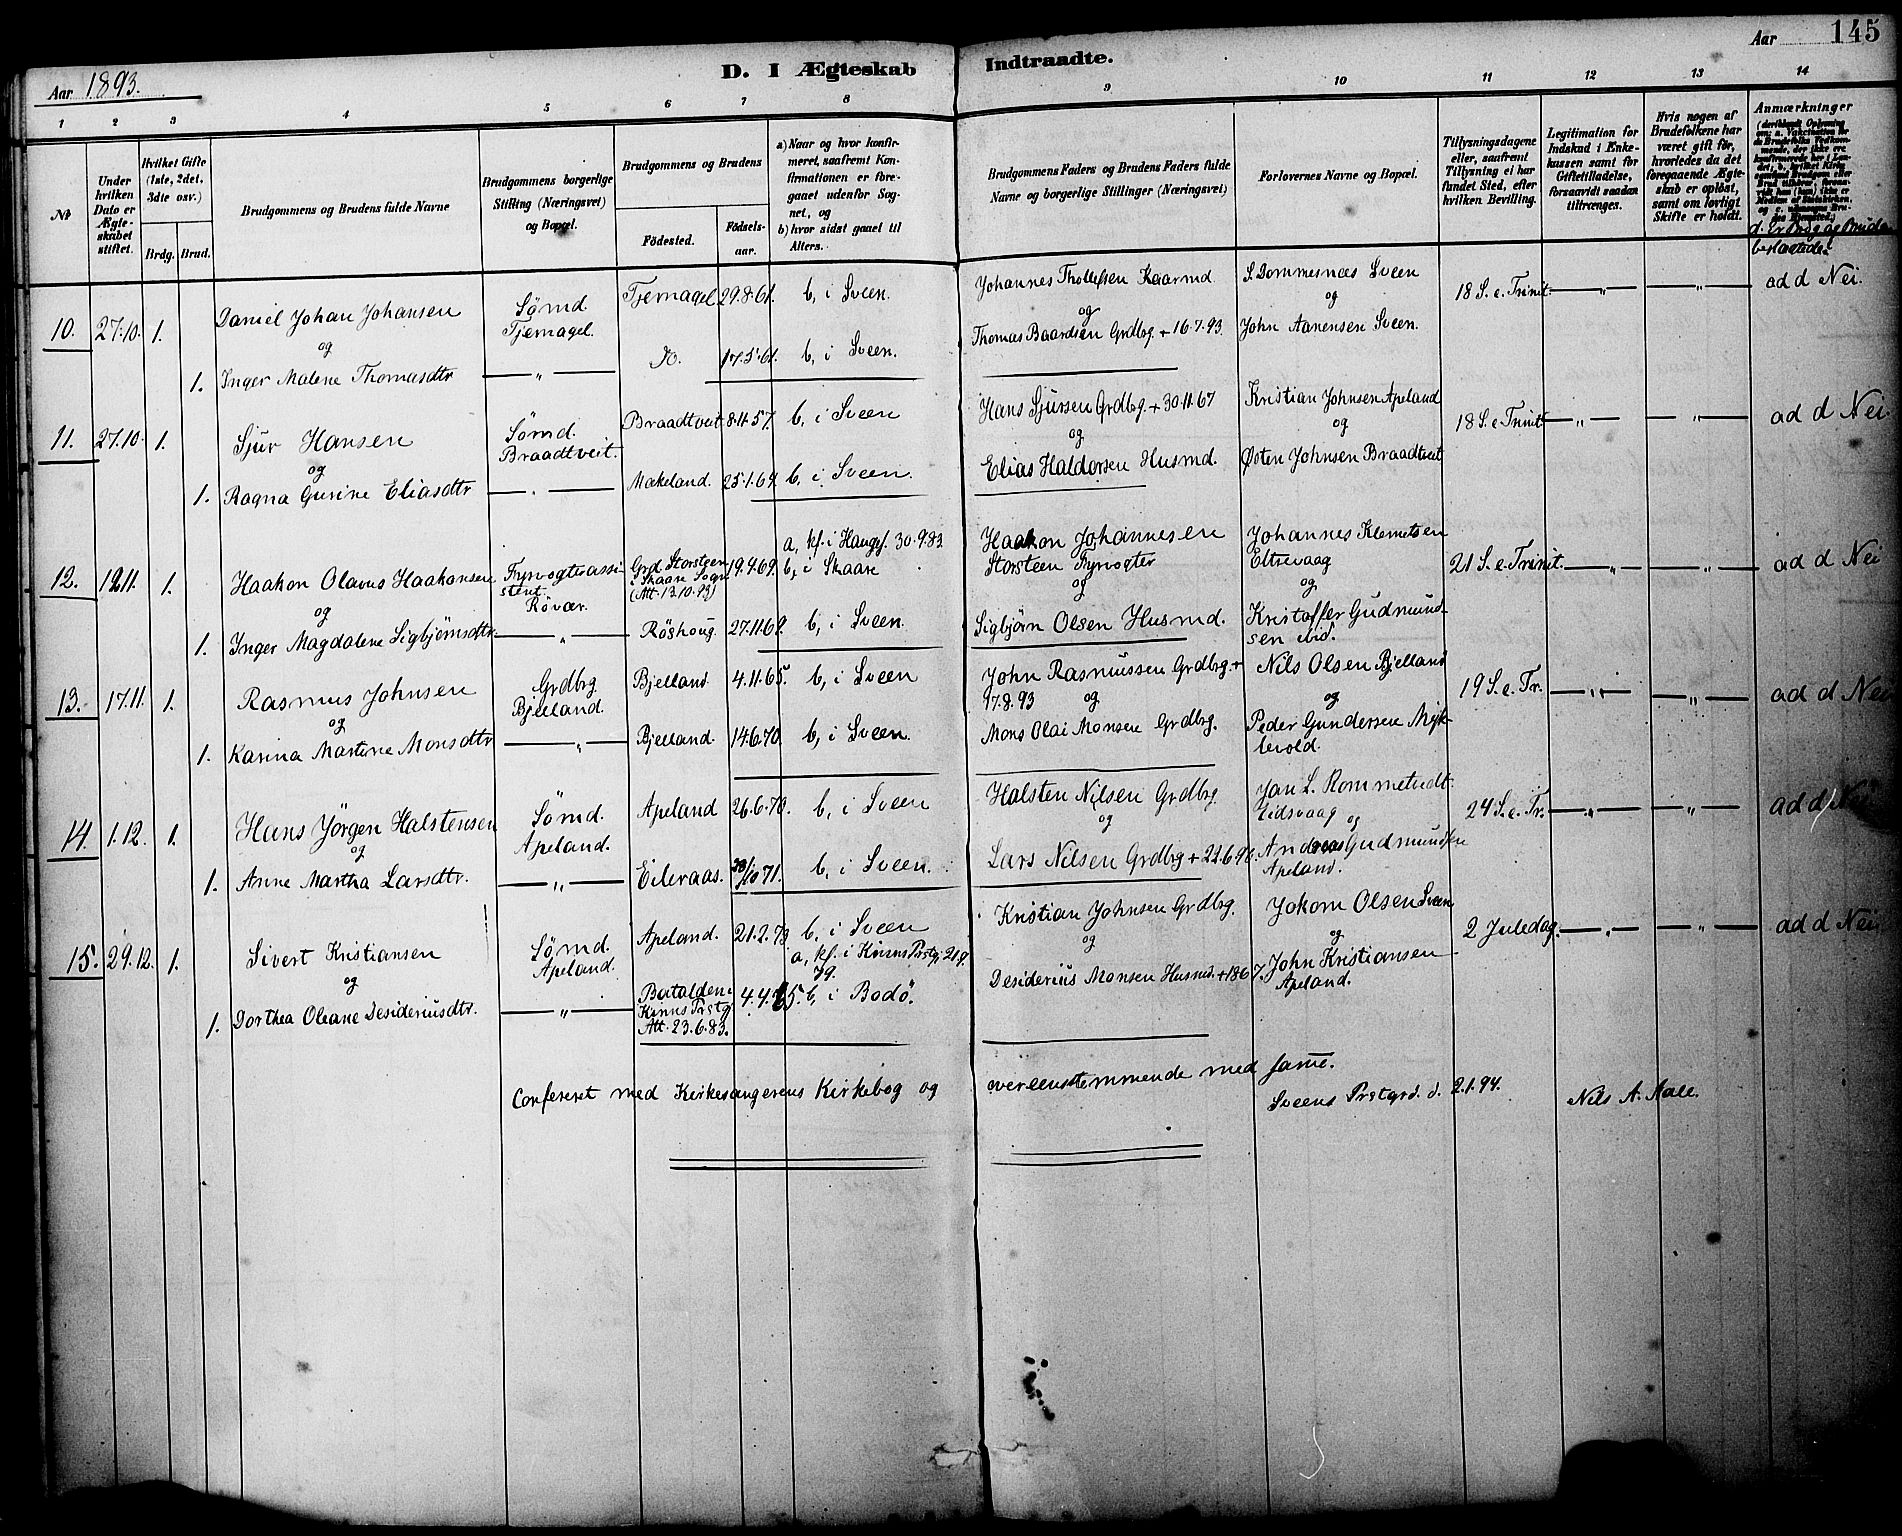 Aar 1893.
D. I Ægteskab Indtraadte.
Aar 145
1 2 3 4 5 6 7 8 9 10 11 12 13 14
No
Under hvilken Dato er Ægteskabet stiftet.
Hvilket Gifte (1ste, 2det, 3die osv.)
Brdg. Brud.
Brudgommens og Brudens fulde Navne
Brudgommens borgerlige Stilling (Næringsvei) og Bopæl.
Brudgommens og Brudens
Födested.
Födselsaar.
a) Naar og hvor konfirmeret, saafremt Konfirmationen er foregaaet udenfor Sognet, og
b) hvor sidst gaaet til Alters.
Brudgommens Faders og Brudens Faders fulde Navne og borgerlige Stillinger (Næringsvei)
Forlovernes Navne og Bopæl.
Tillysningsdagene eller, saafremt Tillysning ei har fundet Sted, efter hvilken Bevilling.
Legitimation for Indskud i Enkekassen samt for Giftetilladelse, forsaavidt saadan tiltrænges.
Hvis nogen af Brudefolkene har været gift för, hvorledes da det foregaaende Ægteskab er oplöst, samt om lovligt Skifte er holdt.
Anmærkninger
10. 27.10. 1. Daniel Johan Johansen Sømd. Tjernagel. Tjernagel 29.8.61. b, i Sveen. Johannes Thollefsen Kaarmd S. Dommesnæs Sveen 18 S. e. Trinit. — „ — — „ — ad d Nei.
og og og
1. Inger Malene Thomasdtr — „ — Do. 17.5.61. b, i Sveen. Thomas Baardsen Grdbrg. + 16.7.93. John Aanensen Sveen.
11. 27.10. 1. Sjur Hansen Sømd. Braadtveit. Braadtveit 8.11.57. b, i Sveen Hans Sjursen Grdbg. + 30.11.67 Kristian Johnsen Apeland 18 S. e Trinit — „ — — „ — ad d Nei
og og og
1. Ragna Gurine Eliasdtr — „ — Mækeland. 25.1.69. b, i Sveen. Elias Haldorsen Husmd. Østen Johnsen Braadtveit
12. 12.11. 1. Haakon Olavus Haakonsen Fyrvogterassistent. Røvær. Grd. Storsteen i Skaare Sogn (Att. 13.10.93) 19.4.69. a, kf. i Haugs. 30.9.83 b, i Skaare Haakon Johannesen Storsteen Fyrvogter Johannes Klemetsen Eltrevaag 21 S. e. Trinit. — „ — — „ — ad d Nei
og og og
1. Inger Magdalene Sigbjørnsdtr. — „ — Røshoug. 27.11.69. b, i Sveen. Sigbjørn Olsen Husmd. Kristoffer Gudmundsen ibid.
13. 17.11. 1. Rasmus Johnsen Grdbrg Bjelland. Bjelland 4.11.65. b, i Sveen John Rasmussen Grdbrg. + 17.8.93 Nils Olsen Bjelland 19 S. e. Tr. — „ — — „ — ad d Nei
og og og
1. Karina Martine Monsdtr — „ — Bjelland. 14.6.70. b, i Sveen. Mons Olai Monsen Grdbrg. Peder Gundersen Myklevold.
14. 1.12. 1. Hans Jørgen Halstensen Sømd. Apeland. Apeland 26.6.70. b, i Sveen Halsten Nilsen Grdbrg. Jan L. Rommetvedt Eidsvaag 24 S. e. Tr. — „ — — „ — ad d Nei
og og og
1. Anne Martha Larsdtr. — „ — Eileraas. 30/10 71. b, i Sveen. Lars Nilsen Grdbrg + 22.6.90. Andreas Gudmundsen Apeland.
15. 29.12. 1. Sivert Kristiansen Sømd. Apeland. Apeland. 21.2.73. b, i Sveen Kristian Johnsen Grdbrg. Jokom Olsen Sveen 2 Juledag. — „ — — „ — ad d Nei
og og og
1. Dorthea Oleane Desideriusdtr. — „ — Batalden Kinns Prstgj. Att. 23.6.83. 4.4.65. a, kf. i Kinns Prstgj. 21.9.79. b, i Bodø. Desiderius Monsen Husmd. + 1867. John Kristiansen Apeland.
Confereret med Kirkesangerens Kirkebog og overeenstemmende med samme.
Sveens Prstgrd. d. 2.1.94. Nils A. Aale.